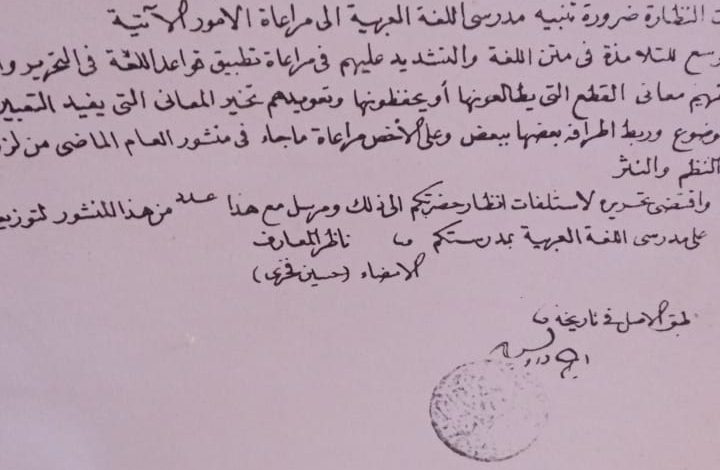 النظارة ضرورة تنبيه مدرسى اللغة العربية الى مراعاة الامور الآتية
للتلامذة فى متن اللغة والتشديد عليهم فى مراعاة تطبيق قواعد اللغة فى التحرير
معانى القطع التى يطالعونها أو يحفظونها وتعويدهم تخير المعانى التى يفيد التعبير
وربط اطرافه بعضها ببعض وعلى الأخص مراعاة ماجاء فى منشور العام الماضى من
النظم والنثر
واقتضى تحريره لاستلفات انظار حضرتكم الى ذلك ومرسل مع هذا عدد من هذا المنشور لتوزيع
على مدرسى اللغة العربية بمدرستكم ناظر المعارف
الامضاء (حسين فخرى)
طبق الاصل فى تاريخه